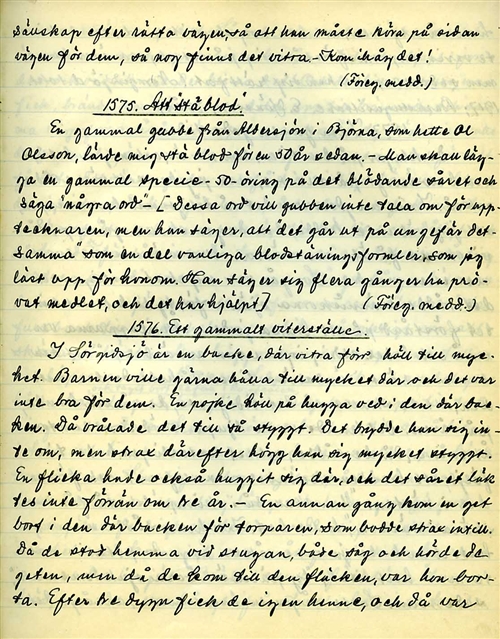 sällskap efter rätta vägen, så att han måste köra på sidan
vägen för dem, så nog finns det vitra. - Kom ihåg det!
(Föreg. medd.)
1575. Att "stå blod".
En gammal gubbe från Albersjön i Björna, som hette Ol
Olsson, lärde mig stå blod för en 50 år sedan. - Man skall läg-
ga en gammal specie-50-öring på det blödande såret och
säga "några ord" - [Dessa ord vill gubben inte tala om för upp-
tecknaren, men han säger, att det går ut på "ungefär det-
samma" som en del vanliga blodstämningsformler, som jag
läst upp för honom. Han säger sig flera gånger ha prö-
vat medlet, och det har hjälpt] (Föreg. medd.)
1576. Ett gammalt viterställe.
I Sörgidsjö är en backe, där vitra förr höll till myc-
ket. Barnen ville gärna hålla till mycket där och det var
inte bra för dem. En pojke höll på hugga ved i den där bac-
ken. Då vrålade det till så styggt. Det brydde han sig in-
te om, men strax därefter högg han sig mycket styggt.
En flicka hade också huggit sig där, och det såret läk-
tes inte förrän om tre år. - En annan gång kom en get
bort i den där backen för torparen, som bodde strax intill.
Då de stod hemma vid stugan, både såg och hörde de
geten, men då de kom till den fläcken, var hon bor-
ta. Efter tre dygn fick de igen henne, och då var